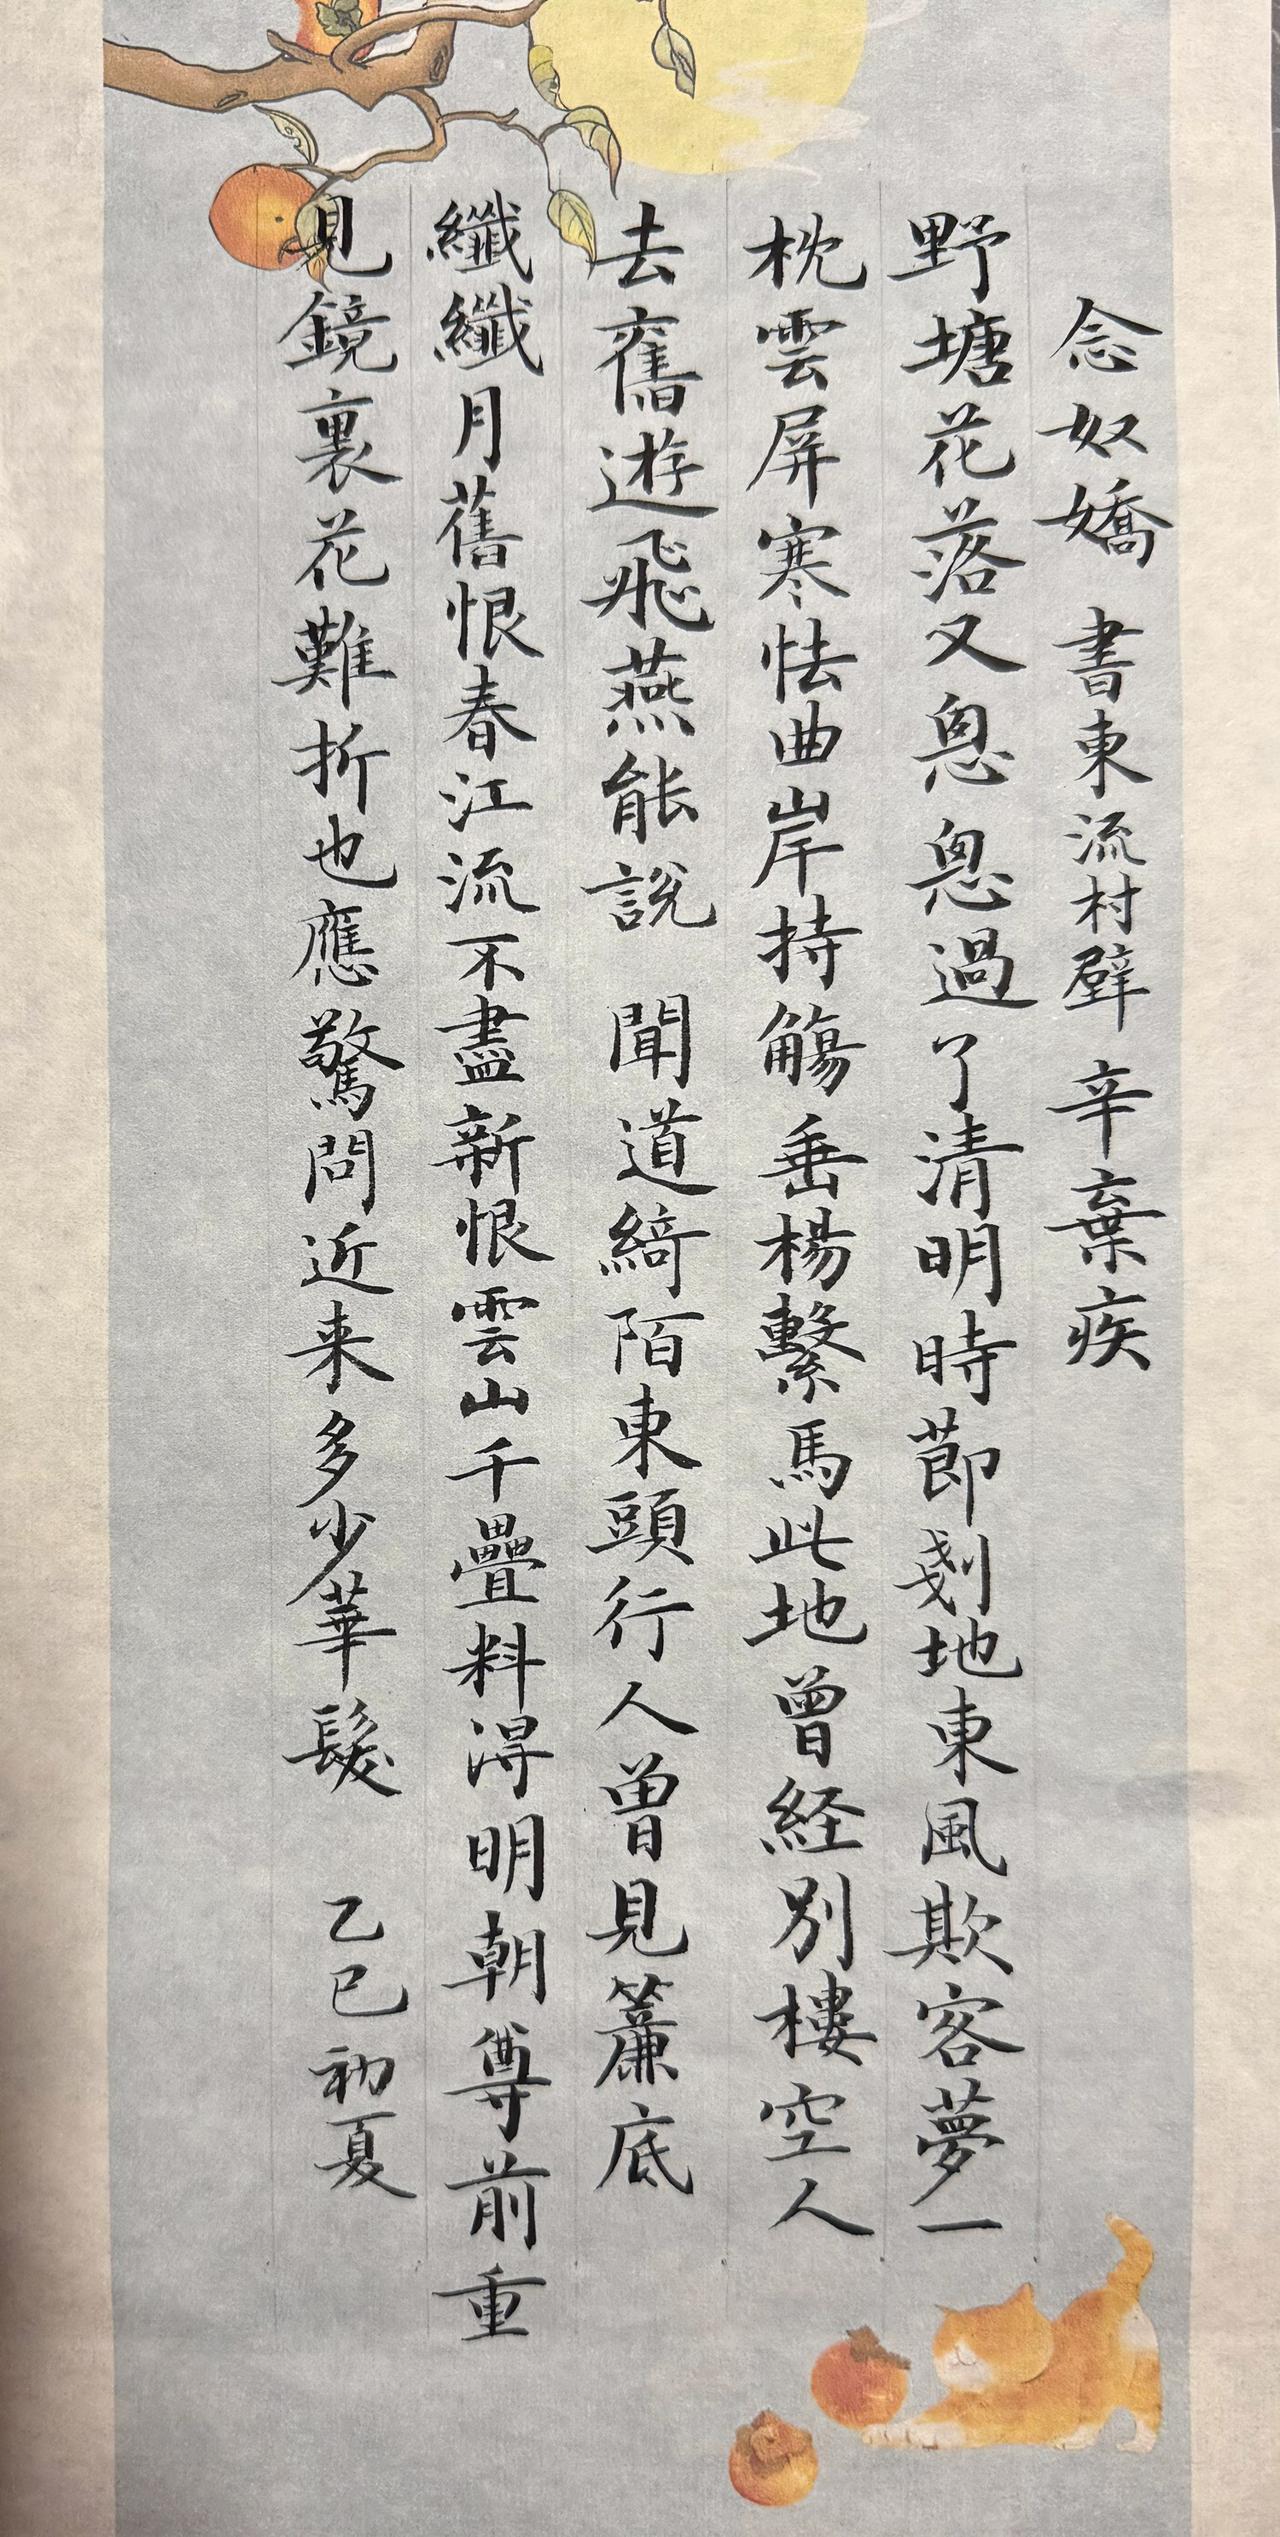 念奴嬌 書東流村壁 辛棄疾
野塘花落又恩恩過了清明時節剗地東風欺客夢一
枕雲屏寒怯曲岸持觴垂楊繫馬此地曾経別樓空人
去舊遊飛燕能說 聞道綺陌東頭行人曽見簾底
纖纖月舊恨春江流不盡新恨雲山千疊料得明朝尊前重
見鏡裏花難折也應驚問近来多少華髮 乙巳初夏